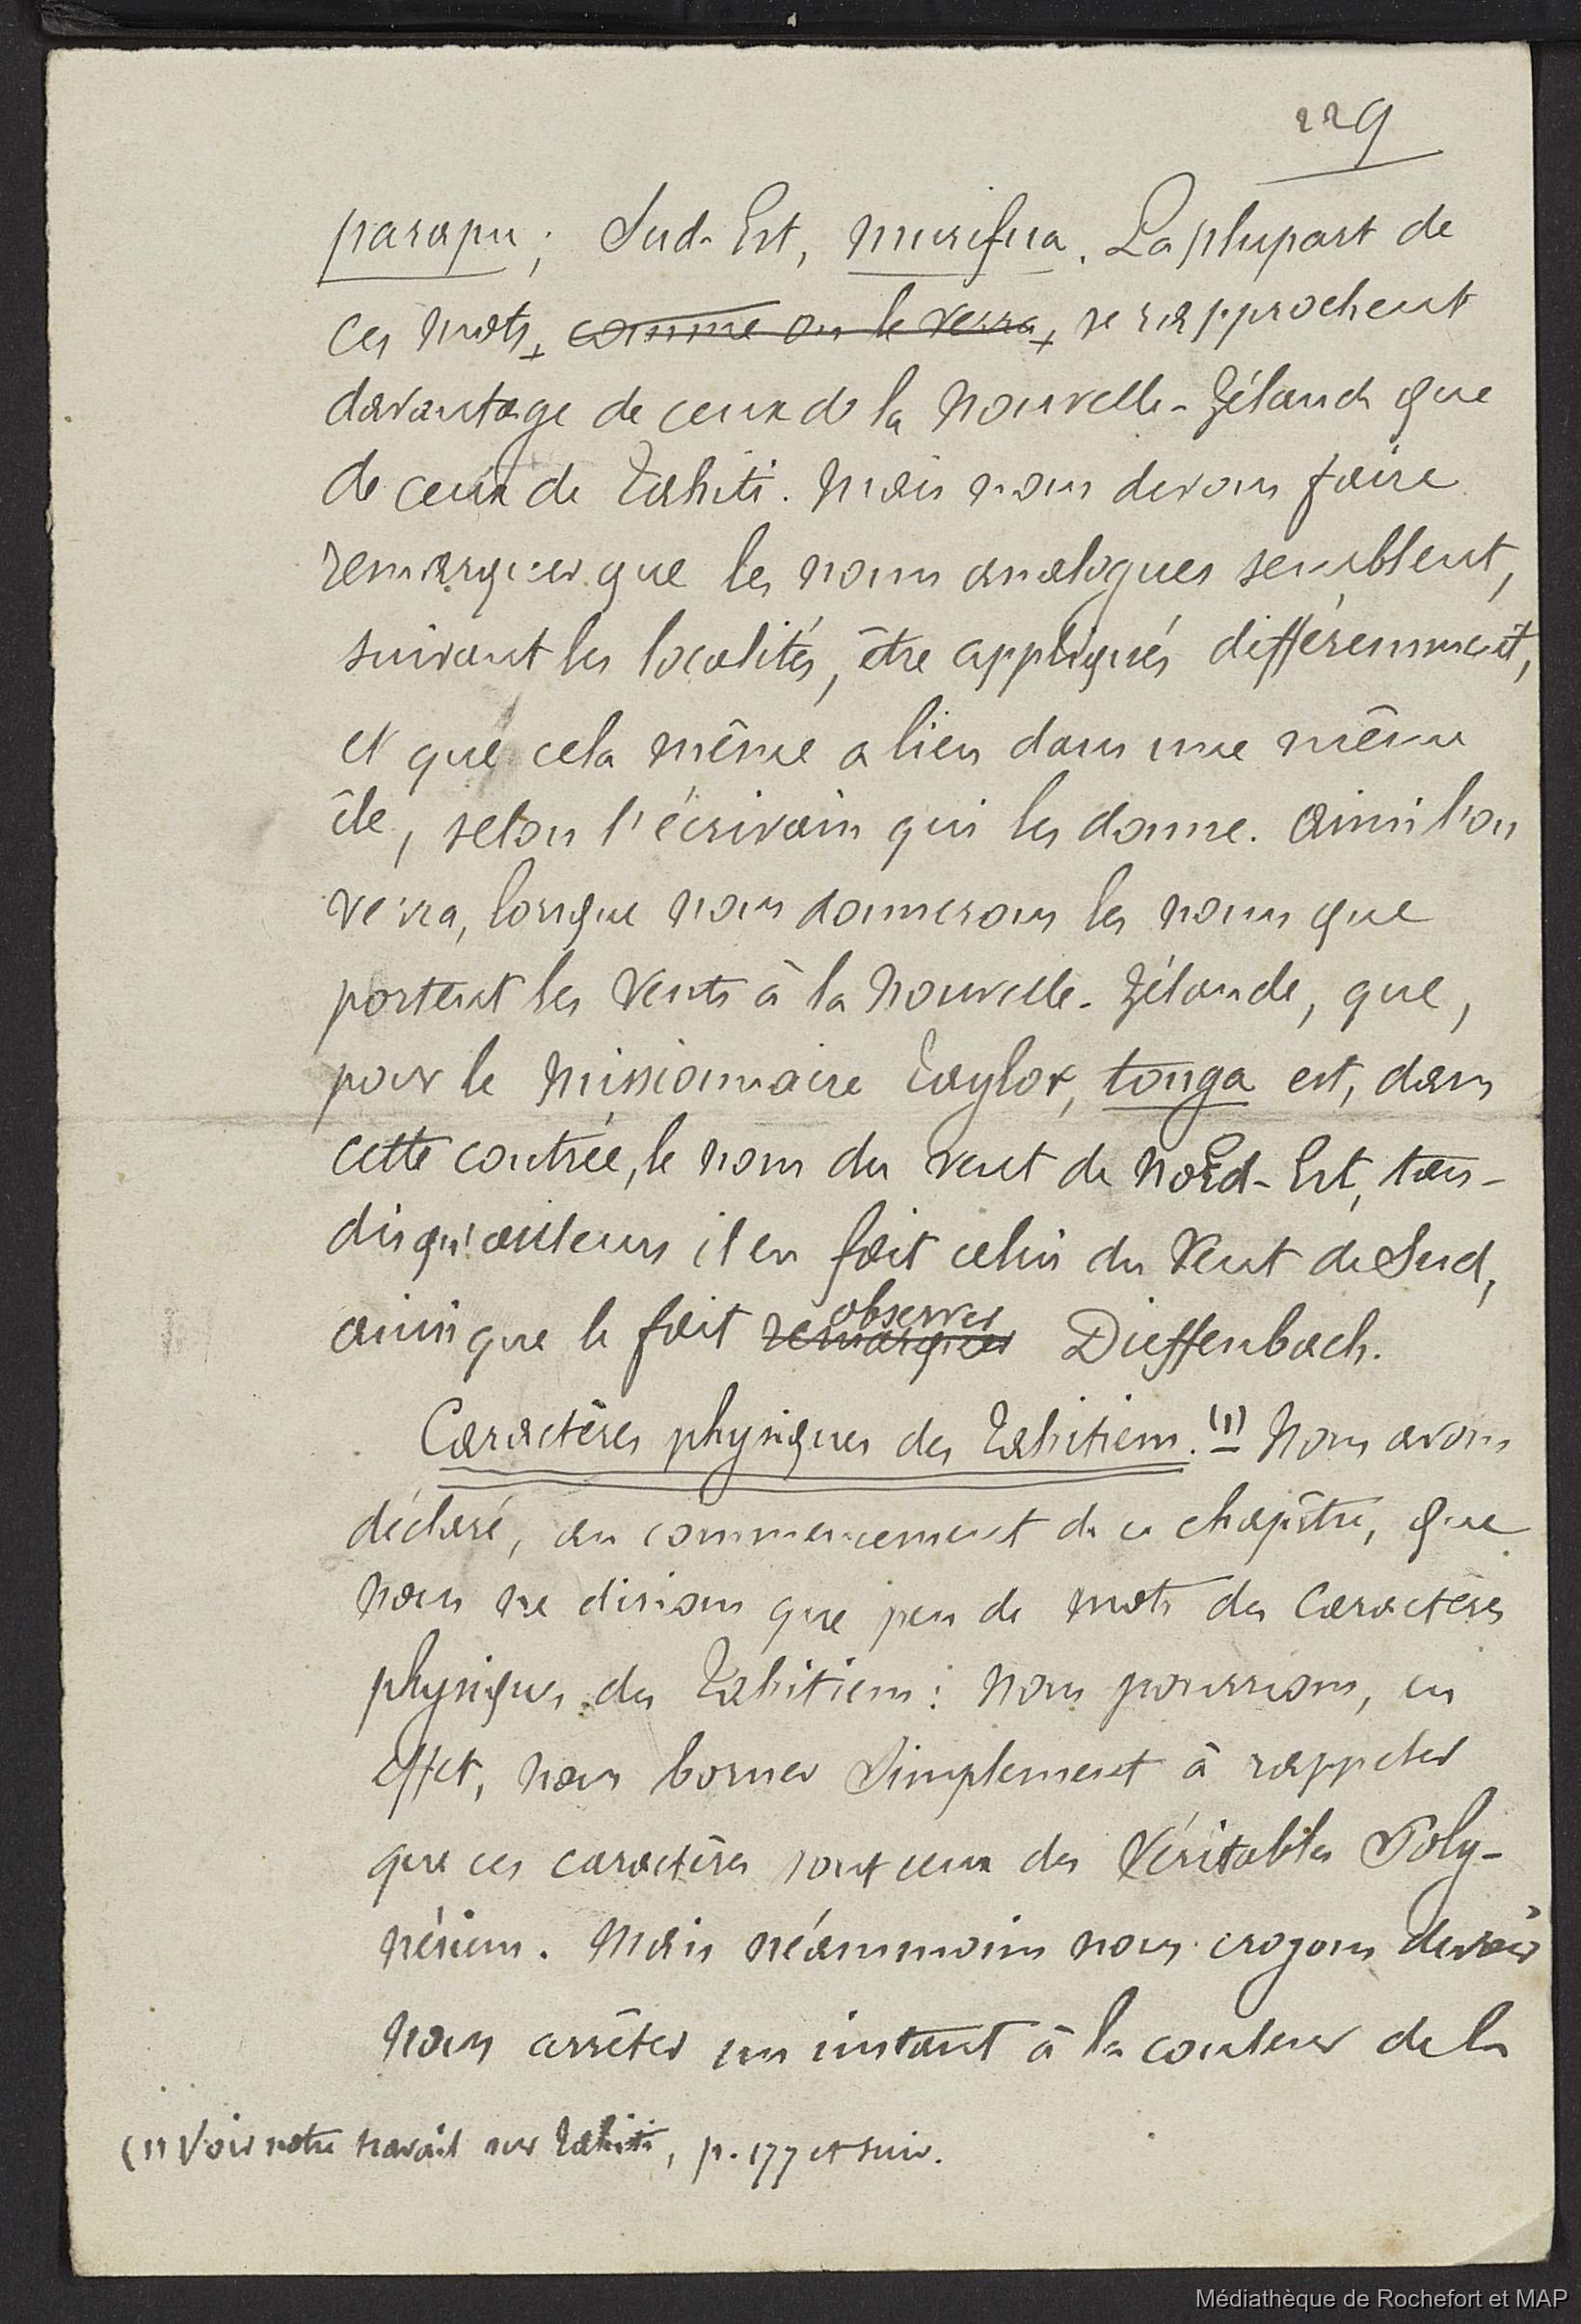 229
parapu ; Sud-Est, murifua. La plupart de
ces mots, comme on le verra, se rapprochent
davantage de ceux de la Nouvelle-Zélande que
de ceux de Tahiti. Mais nous devons faire
remarquer que les noms analogues semblent,
suivant les localités, être appliqués différemment,
et que cela même a lieu dans une même
île, selon l'écrivain qui les donne. Ainsi l'on
verra, lorsque nous donnerons les noms que
portent les vents à la Nouvelle-Zélande, que,
pour le missionnaire Taylor, tonga est, dans
cette contrée, le nom du vent de Nord-Est, tan-
dis qu'ailleurs il en fait celui du vent de Sud,
observer
ainsi que le fait remarquer Dieffenbach.
Caractères physiques des Tahitiens. (1) Nous avons
déclaré, au commencement de ce chapître, que
nous ne dirions que peu de mots des caractères
physiques des Tahitiens : nous pourrions, en
effet, nous borner simplement à rappeler
que ces caractères sont ceux des véritables Poly-
nésiens. Mais néammoins nous croyons devoir
nous arrêter un instant à la couleur de la
(1) Voir notre travail sur Tahiti, p. 177 et suiv.
Médiathèque de Rochefort et MAP